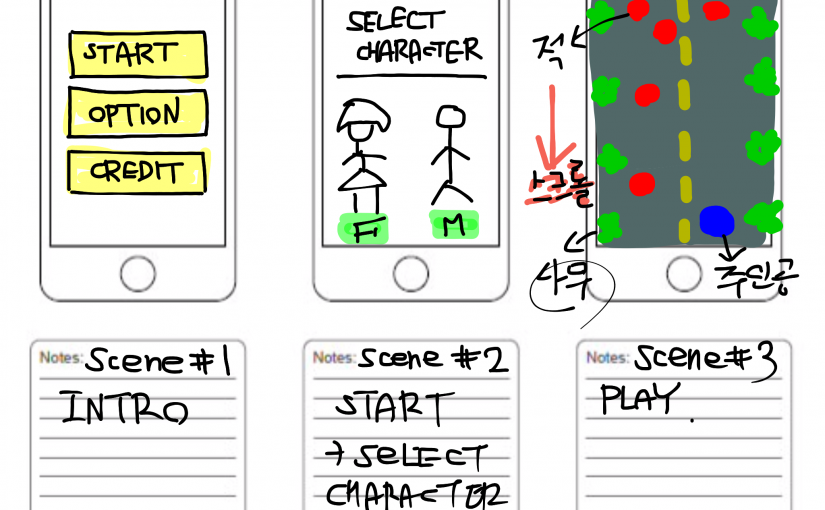 START
OPTION
CREDIT
SELECT
CHARACTER
F
M
적
스크롤
주인공
Notes: Scene #1
INTRO
Notes: Scene #2
START
→ SELECT
CHARACTER
Notes: Scene #3
PLAY.